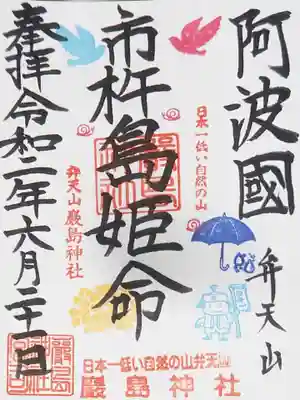 阿波國
弁天山
日本一低い自然の山
市杵島姫命
弁天山 厳島神社
奉拝 令和二年六月二十一日
日本一低い自然の山弁天山
厳島神社